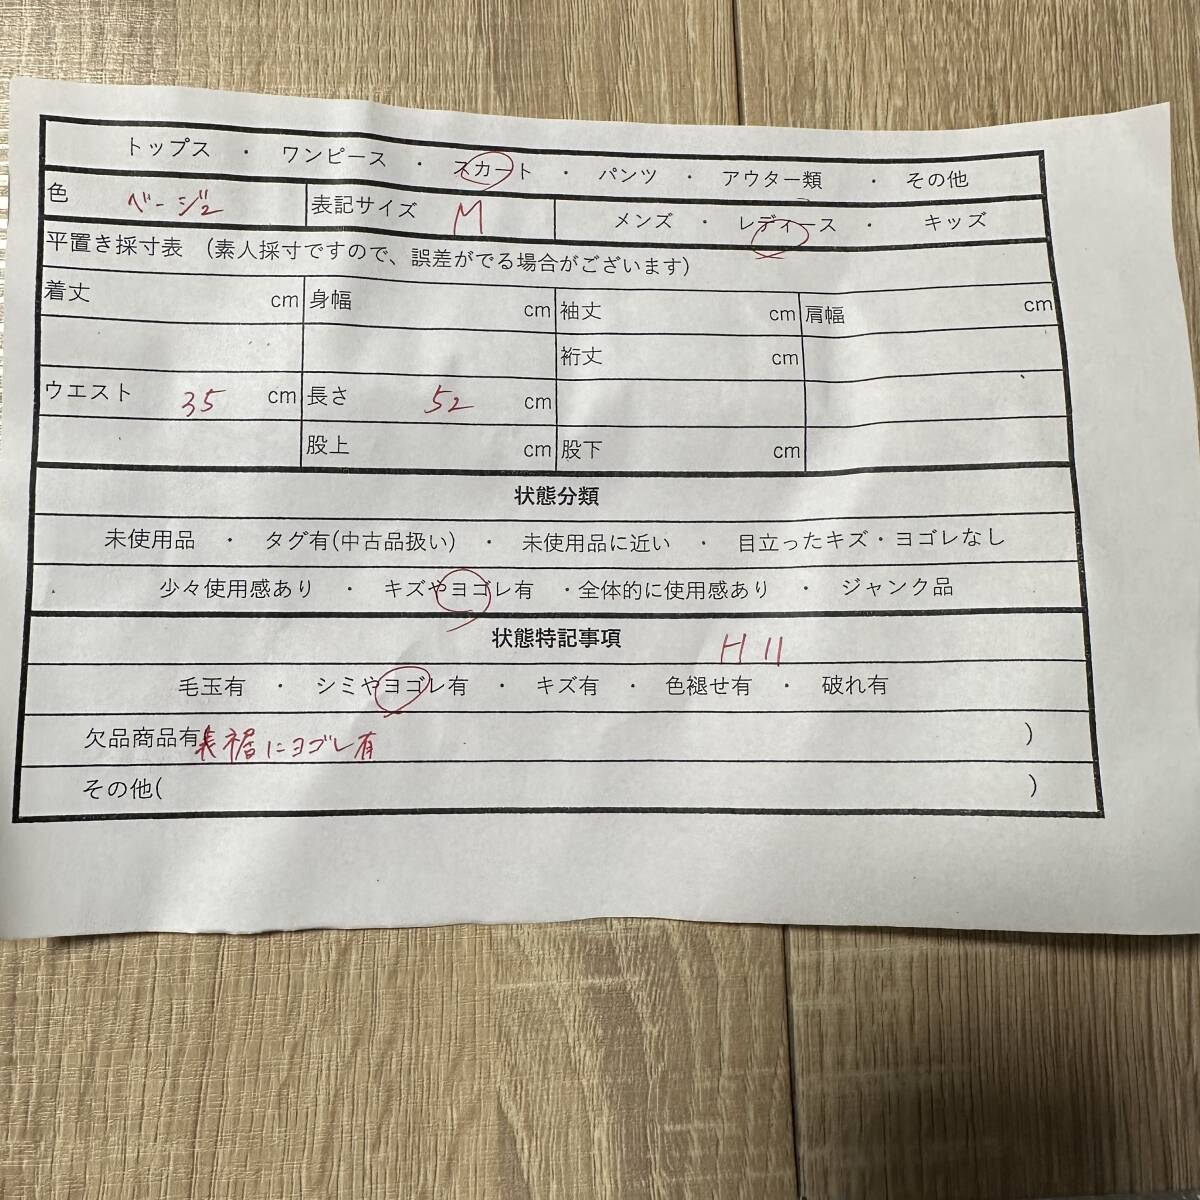 トップス ・ ワンピース ・ スカート ・ パンツ ・ アウター類 ・ その他
色 ベージュ 表記サイズ M メンズ ・ レディース ・ キッズ
平置き採寸表 (素人採寸ですので、誤差がでる場合がございます)
着丈 cm 身幅 cm 袖丈 cm 肩幅 cm
裄丈 cm
ウエスト 35 cm 長さ 52 cm
股上 cm 股下 cm
状態分類
未使用品 ・ タグ有(中古品扱い) ・ 未使用品に近い ・ 目立ったキズ・ヨゴレなし
少々使用感あり ・ キズやヨゴレ有 ・全体的に使用感あり ・ ジャンク品
状態特記事項 H11
毛玉有 ・ シミやヨゴレ有 ・ キズ有 ・ 色褪せ有 ・ 破れ有
欠品商品有 表裾にヨゴレ有 )
その他( )